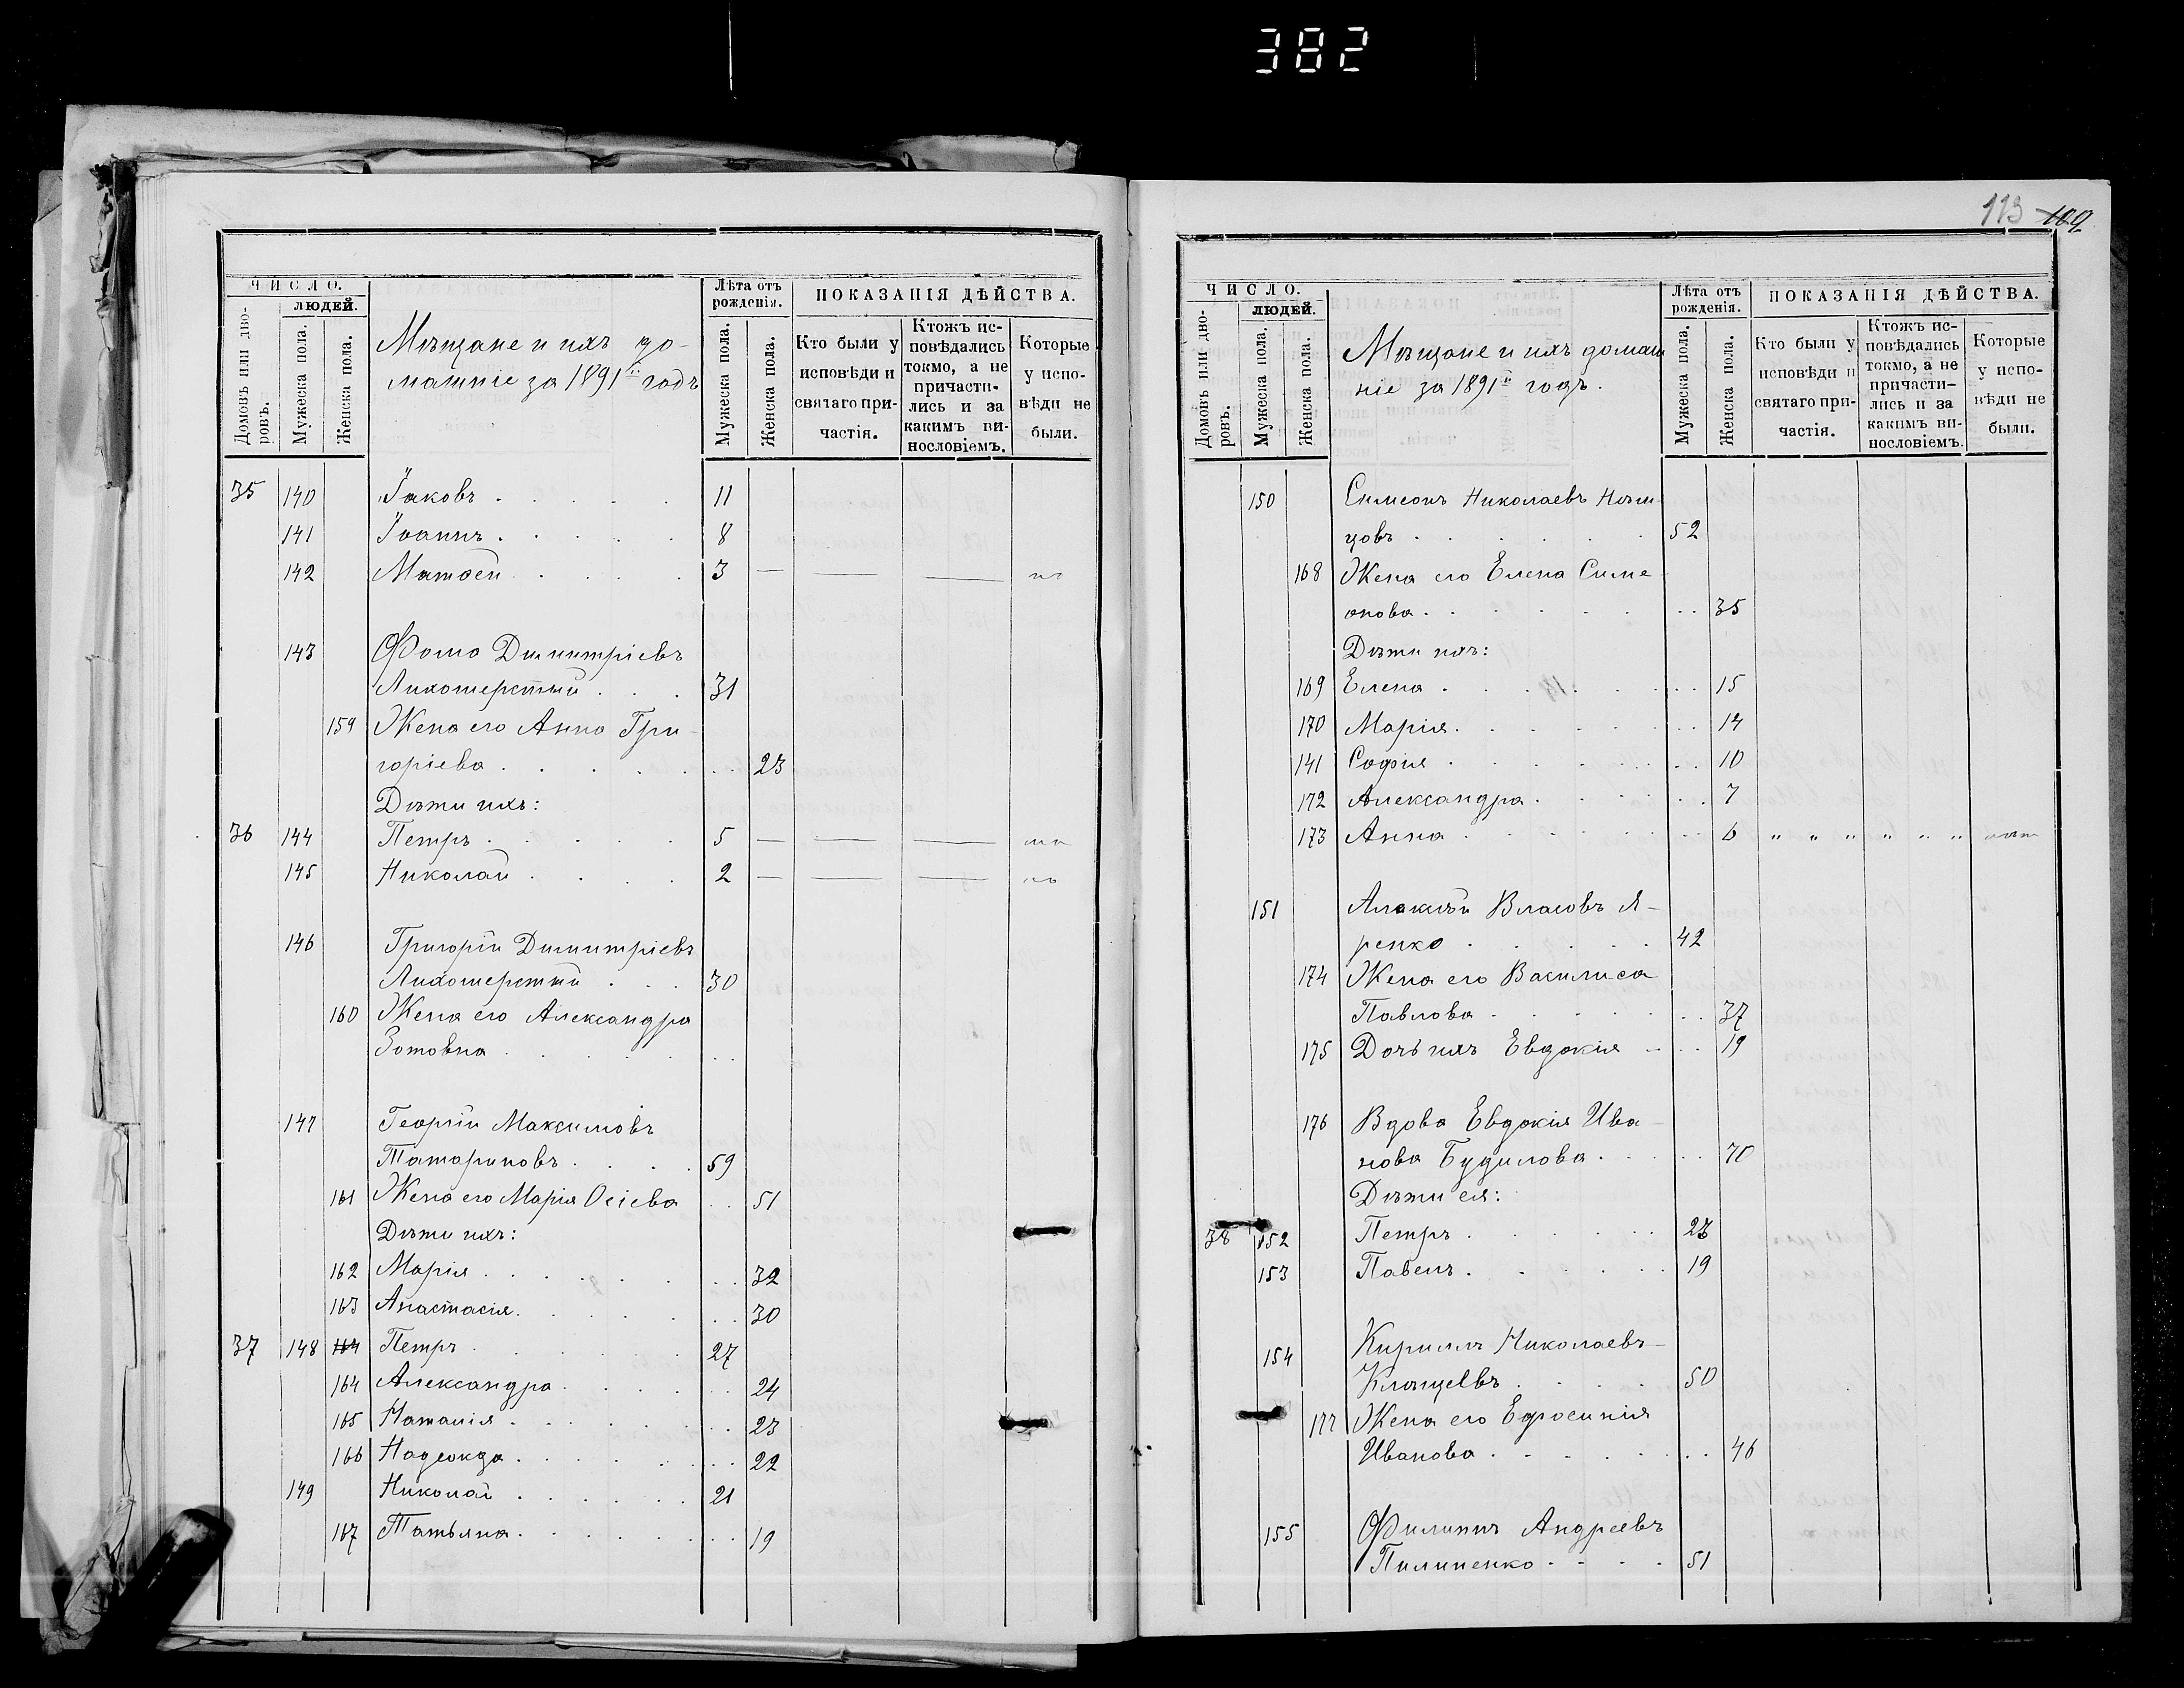 382
ЧИСЛО.
ЛЮДЕЙ.
Домовъ или дво-
ровъ.
Мужеска пола.
Женска пола.
Мѣщане и ихъ до-
машніе за 1891й годъ
Лѣта отъ
рожденія.
Мужеска пола.
Женска пола.
ПОКАЗАНІЯ ДѢЙСТВА.
Кто были у
исповѣди и
святаго при-
частія.
Ктожъ ис-
повѣдались
токмо, а не
причасти-
лись и за
какимъ ви-
нословіемъ.
Которые
у испо-
вѣди не
были.
35 140 Іаковъ . . . . . 11
141 Іоаннъ . . . . . 8
142 Матѳей . . . . 3 — — —
143 Ѳома Димитріевъ
Лихошерстый . . . 31
159 Жена его Анна Гри-
горіева . . . . . . . 23
Дѣти ихъ:
36 144 Петръ . . . . . 5 — — —
145 Николай . . . . 2 — — —
146 Григорій Димитріевъ
Лихошерстый . . . 30
160 Жена его Александра
Зотовна . . . . . . .
147 Георгій Максимовъ
Татариновъ . . . . 59
161 Жена его Марія Осіева . . 51
Дѣти ихъ:
162 Марія . . . . . . . . 32
163 Анастасія . . . . . . . 30
37 148 164 Петръ . . . . . . 27
164 Александра . . . . . . 24
165 Наталія . . . . . . . 23
166 Надежда . . . . . . . 22
149 Николай . . . . . . 21
167 Татьяна . . . . . . . 19
113 109
ЧИСЛО.
ЛЮДЕЙ.
Домовъ или дво-
ровъ.
Мужеска пола.
Женска пола.
Мѣщане и ихъ домаш
ніе за 1891й годъ.
Лѣта отъ
рожденія.
Мужеска пола.
Женска пола.
ПОКАЗАНІЯ ДѢЙСТВА.
Кто были у
исповѣди и
святаго при-
частія.
Ктожъ ис-
повѣдались
токмо, а не
причасти-
лись и за
какимъ ви-
нословіемъ.
Которые
у испо-
вѣди не
были.
150 Симеонъ Николаевъ Нѣм-
цовъ . . . . . . 52
168 Жена его Елена Симе-
онова . . . . . . . . 35
Дѣти ихъ:
169 Елена . . . . . . . . 15
170 Марія . . . . . . . . 14
141 Софія . . . . . . . . 10
172 Александра . . . . . . 7
173 Анна . . . . . . . . 6 " " " " " "
151 Алексѣй Власовъ Я-
ренко . . . . . 42
174 Жена его Василиса
Павлова . . . . . . . 37
175 Дочь ихъ Евдокія . . . 19
176 Вдова Евдокія Ива-
нова Будилова . . . . . 70
Дѣти ея:
38 152 Петръ . . . . . . 23
153 Павелъ . . . . . . 19
154 Кириллъ Николаевъ
Клѣщевъ . . . . 50
177 Жена его Ефросинія
Иванова . . . . . . . 46
155 Филиппъ Андреевъ
Пилипенко . . . . 51